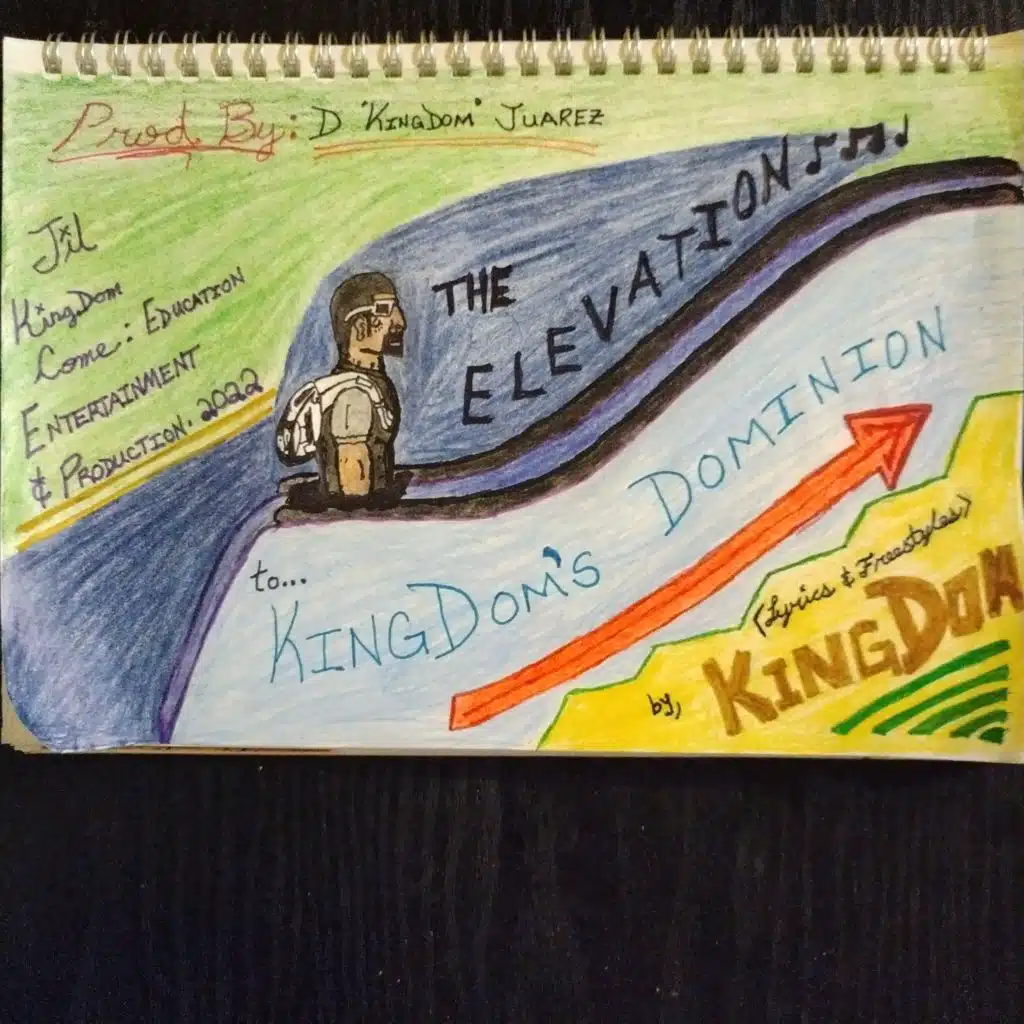 Prod. By: D "KingDom" Juarez
Jil
KingDom
Come: Education
Entertainment
& Production. 2022
The
Elevation
to...
KingDom's Dominion
(Lyrics & Freestyles)
by, KingDom